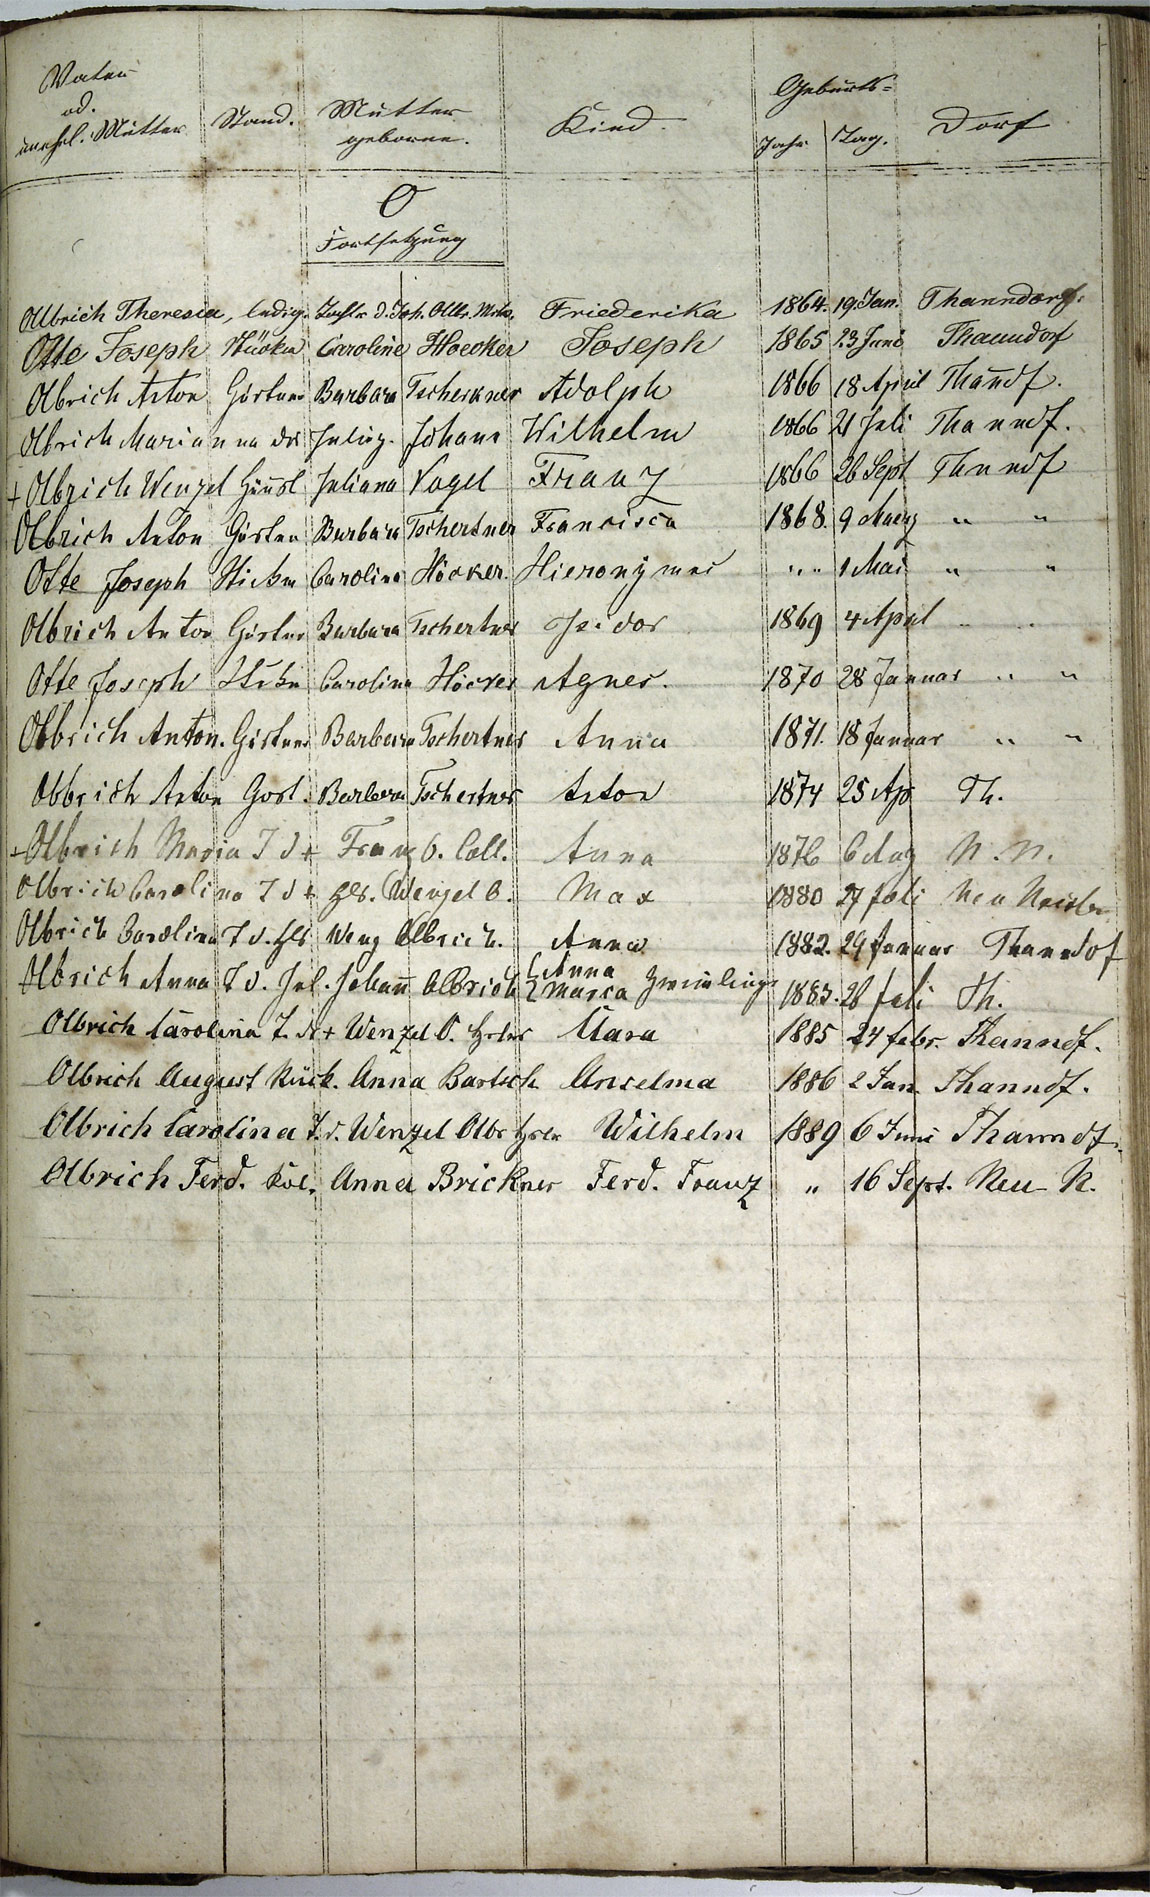 Vater
od.
unehl. Mutter
Stand.
Mutter
geborne.
Kind.
Geburts-
Jahr
Tag.
Dorf
O
Fortsetzung
Olbrich Theresia, ledige Tocht. d. Joh. Olbr. Friederika 1864. 19. Jan. Thanndorf.
Otte Joseph Stücker Caroline Hoecker Joseph 1865 23 Juni Thanndorf
Olbrich Anton Gärtner Barbara Tschertner Adolph 1866 18 April Than̄df.
Olbrich Marianna des Johann Wilhelm 1866 21 Juli Thanndf.
+ Olbrich Wenzel Häusl Juliana Vogel Franz 1866 26 Sept Thnndf
Olbrich Anton Gärtner Barbara Tschertner Francisca 1868. 9 Maerz " "
Otte Joseph Carolina Höcker. Hieronymus " " 1 Mai " "
Olbrich Anton Gärtner Barbara Tschertner Isidor 1869 4 April " "
Otte Joseph Carolina Höcker Agnes. 1870 28 Januar " "
Olbrich Anton. Gärtner Barbara Tschertner Anna 1871. 18 Januar " "
Olbrich Anton Gärt. Barbara Tschertner Anton 1874 25 Ap Th.
+ Olbrich Maria T d + Franz O. Coll. Anna 1876 6 Aug N. N.
Olbrich Carolina T d + Hls. Wenzel O. Max 1880 27 Juli Neu
Olbrich Carolina T d. Hls Wenz Olbrich. Anna 1882. 29 Januar Thanndof
Olbrich Anna T d. Johan̄ Olbrich { Anna Maria Zwillinge 1883. 28 Juli Th.
Olbrich Carolina T. d. + Wenzel O. Clara 1885 24 febr. Thanndf.
Olbrich August Rück. Anna Bartsch Anselma 1886 2 Jan. Thanndf.
Olbrich Carolina T. d. Wenzel Olbr Wilhelm 1889 6 Juni Thanndf.
Olbrich Ferd. Kol. Anna Brickner Ferd. Franz " 16 Sept. Neu N.